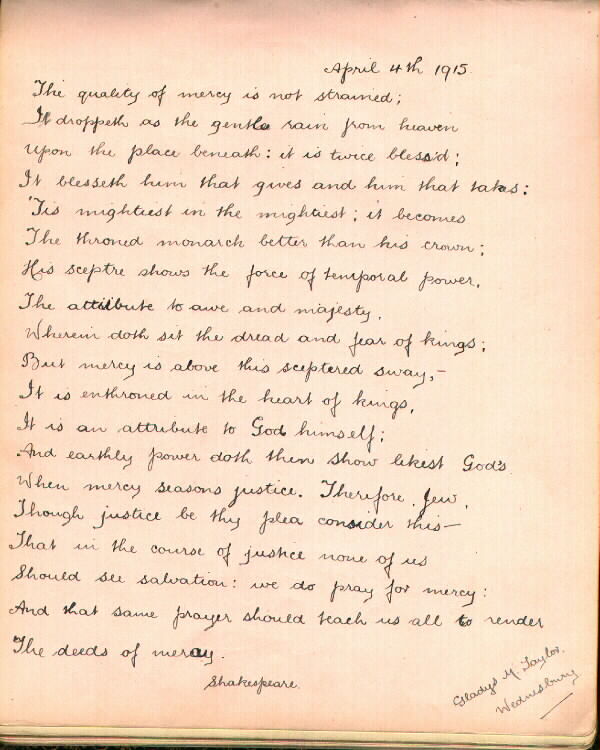 April 4th 1915.
The quality of mercy is not strained;
It droppeth as the gentle rain from heaven
Upon the place beneath: it is twice bless'd;
It blesseth him that gives and him that takes:
'Tis mightiest in the mightiest; it becomes
The throned monarch better than his crown;
His sceptre shows the force of temporal power,
The attribute to awe and majesty,
Wherein doth sit the dread and fear of kings;
But mercy is above this sceptered sway,—
It is enthroned in the heart of kings,
It is an attribute to God himself;
And earthly power doth then show likest God's
When mercy seasons justice. Therefore, Jew,
Though justice be thy plea consider this—
That in the course of justice none of us
Should see salvation: we do pray for mercy:
And that same prayer should teach us all to render
The deeds of mercy.
Shakespeare.
Gladys M. Taylor.
Wednesbury